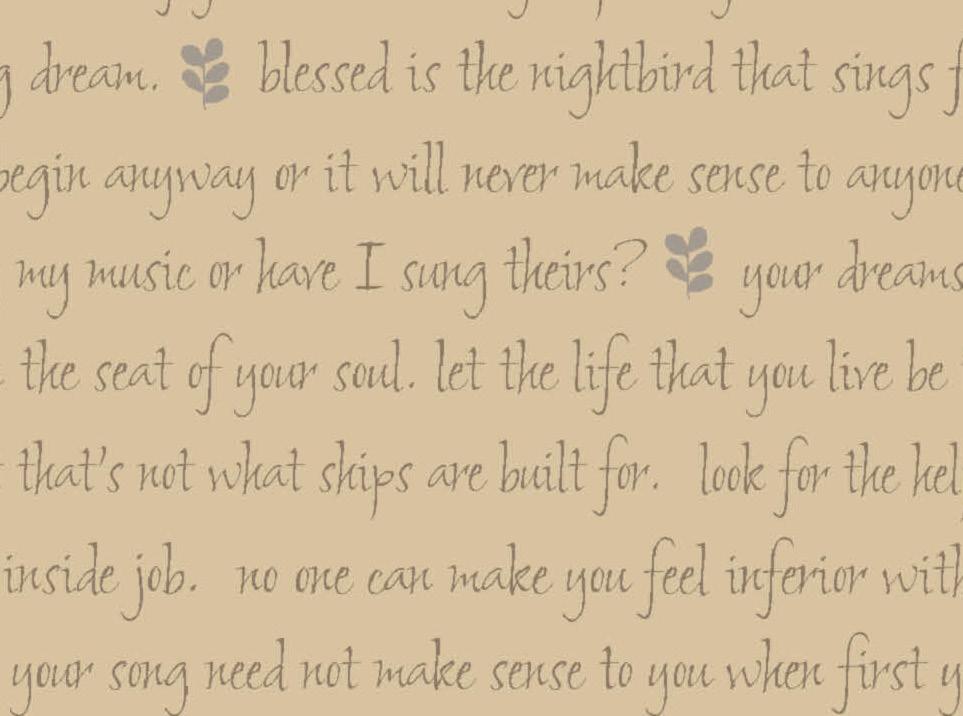 dream. blessed is the nightbird that sings
begin anyway or it will never make sense to anyone
my music or have I sung theirs? your dreams
the seat of your soul. let the life that you live be
that's not what ships are built for. look for the hel
inside job. no one can make you feel inferior with
your song need not make sense to you when first y